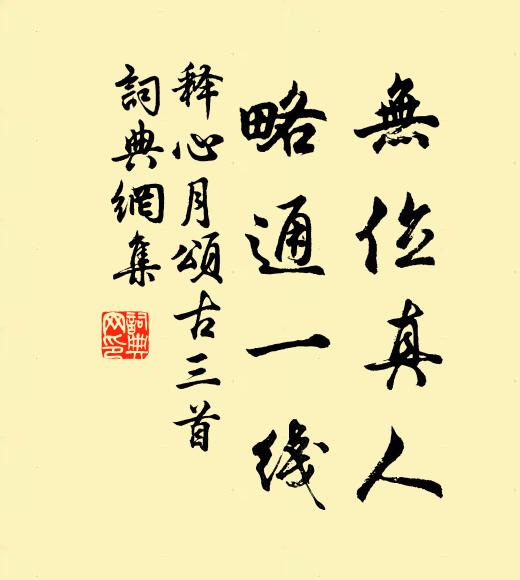 無位真人
略通一线
释心月頌古三首
詞典網集
詞典
网印